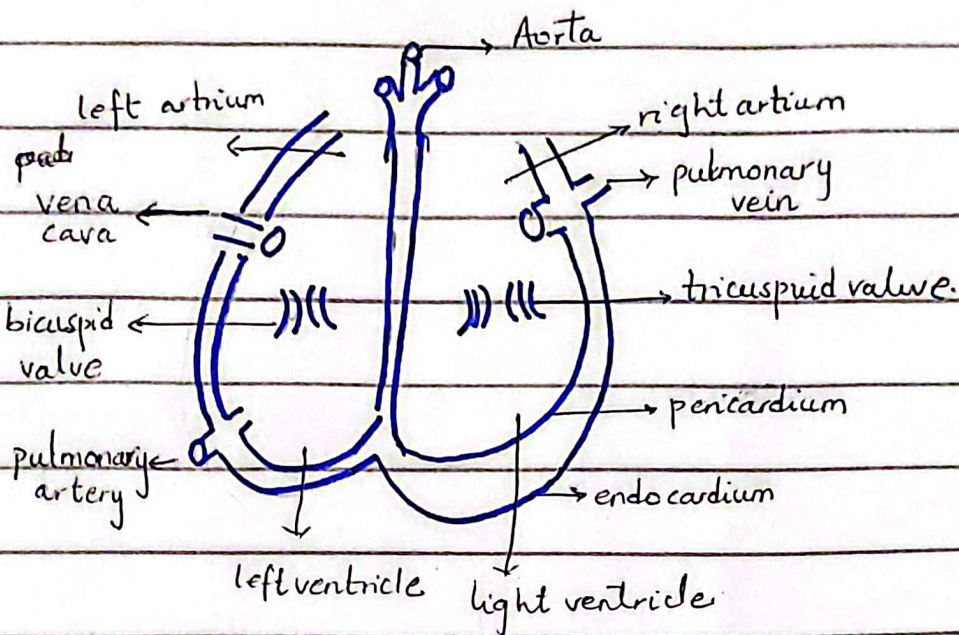 Aorta
left artrium
right artium
pulmonary
vein
vena
cava
tricuspuid valve.
bicuspid
valve
pericardium
pulmonary
artery
endocardium
left ventricle
light ventricle